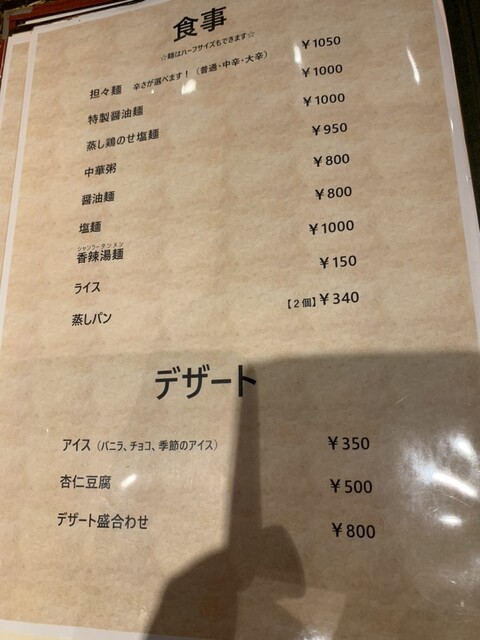 食事
☆麺はハーフサイズもできます☆
担々麺 辛さが選べます!(普通・中辛・大辛) ¥1050
特製醤油麺 ¥1000
蒸し鶏のせ塩麺 ¥1000
中華粥 ¥950
醤油麺 ¥800
塩麺 ¥800
シャンラータンメン
香辣湯麺 ¥1000
ライス ¥150
蒸しパン 【2個】¥340
デザート
アイス(バニラ、チョコ、季節のアイス) ¥350
杏仁豆腐 ¥500
デザート盛合わせ ¥800